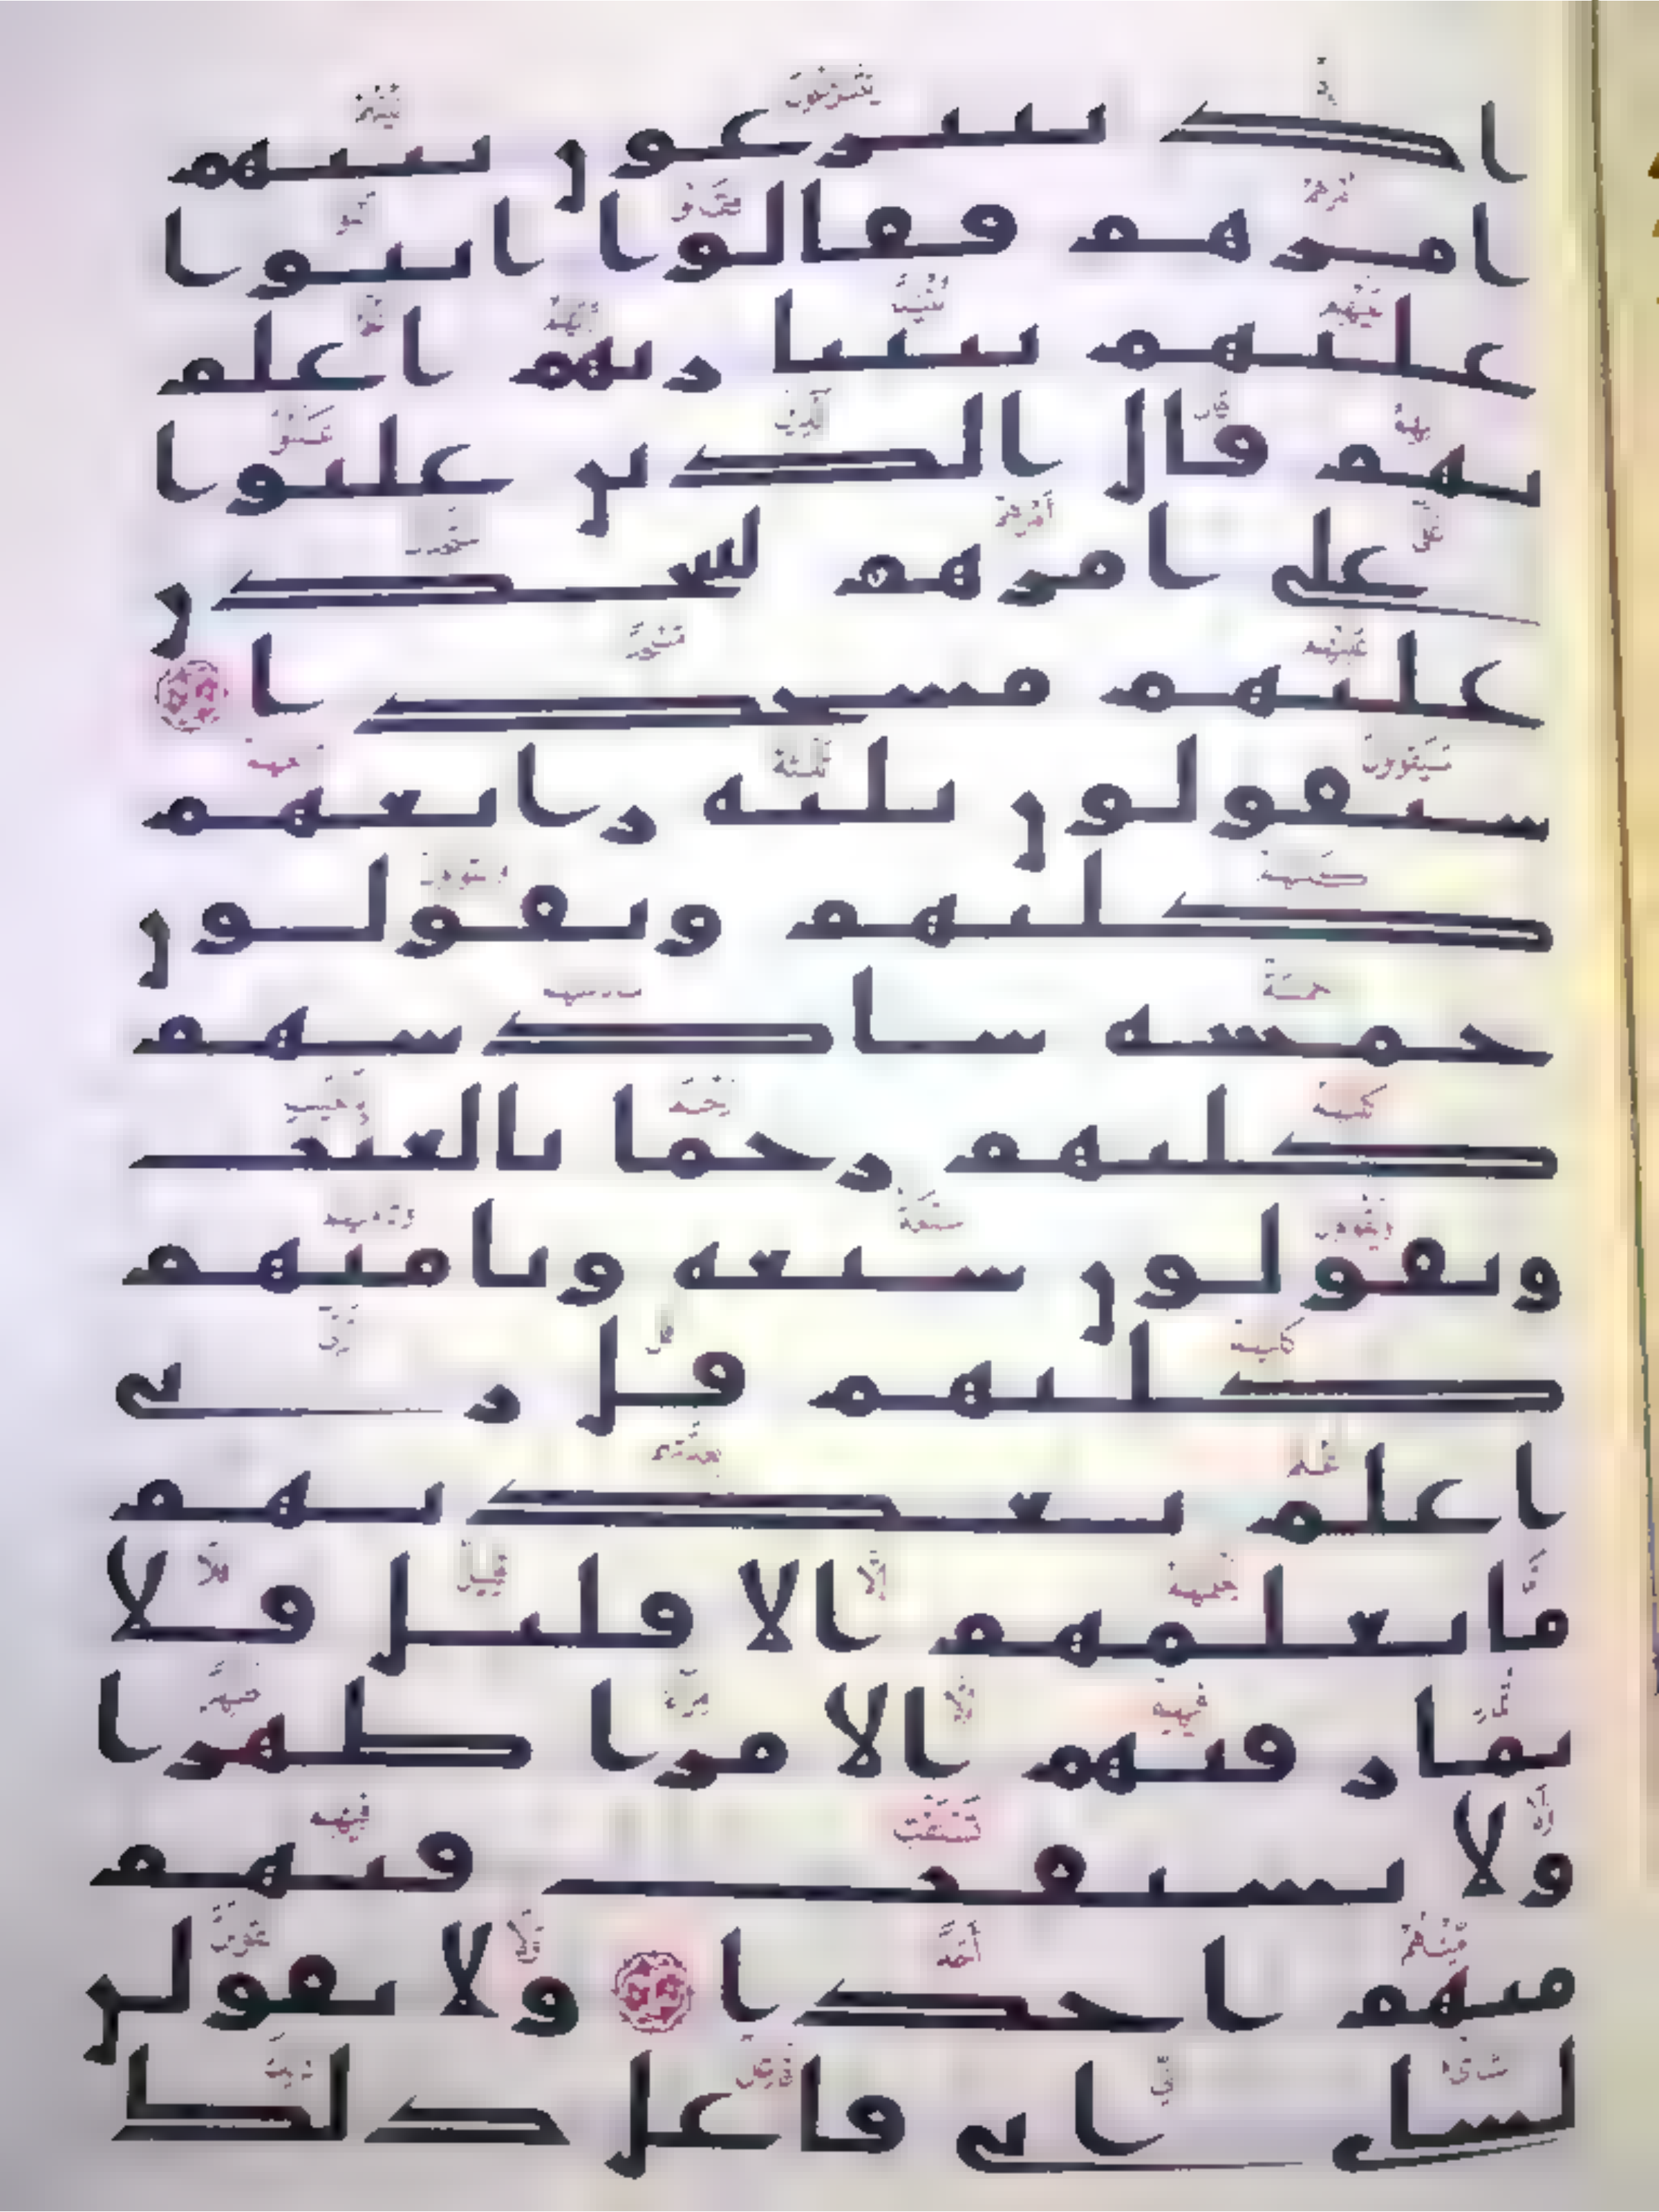 اذ يتنزعون بينهم
امرهم فقالوا ابنوا
عليهم بنينا ربهم اعلم
بهم قال الذين غلبوا
على امرهم لنتخذن
عليهم مسجدا
سيقولون ثلثه رابعهم
كلبهم ويقولون
خمسه سادسهم
كلبهم رجما بالغيب
ويقولون سبعه وثامنهم
كلبهم قل ربي
اعلم بعدتهم
ما يعلمهم الا قليل فلا
تمار فيهم الا مرا ظهرا
ولا تستفت فيهم
منهم احدا ولا تقولن
لشاي اني فاعل ذلك